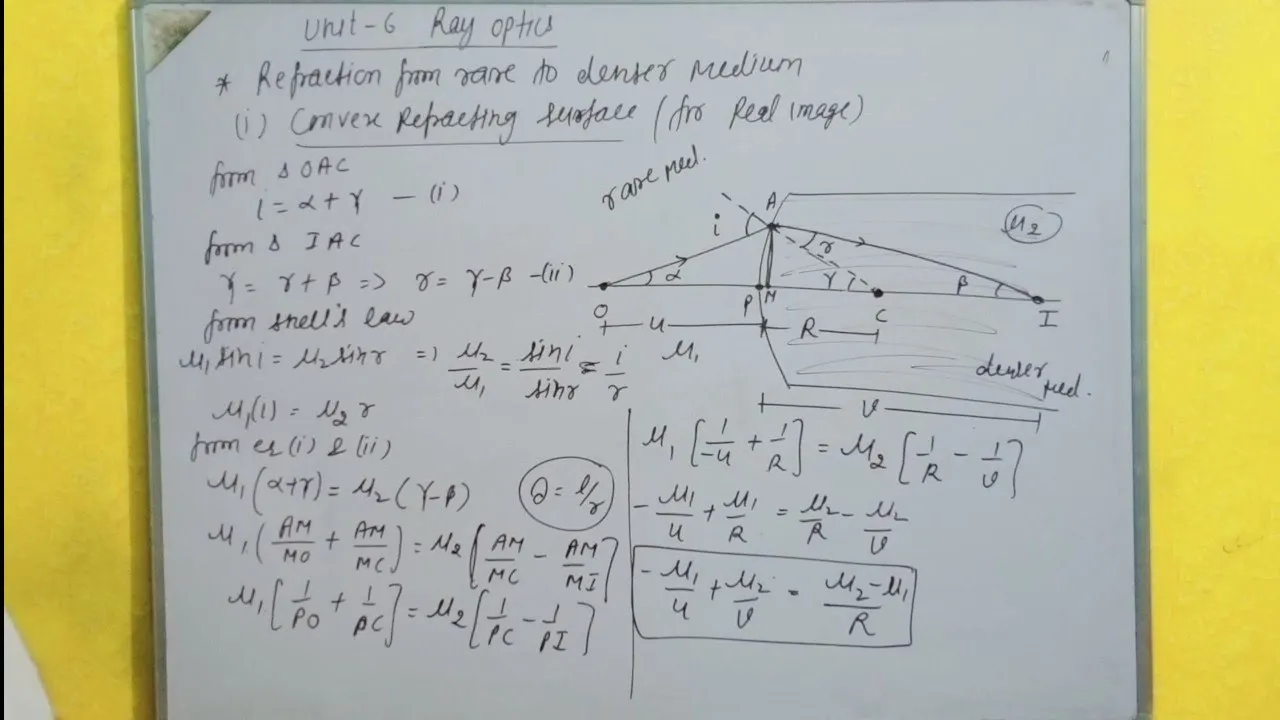 Unit-6 Ray optics
* Refraction from rare to denser medium
(i) Convex Refracting surface (for Real image)
from Δ OAC
i = α + γ — (i)
from Δ IAC
γ = r + β => r = γ - β — (ii)
from snell's law
μ₁ sin i = μ₂ sin r => μ₂/μ₁ = sin i/sin r = i/r
μ₁(i) = μ₂ r
from eq (i) & (ii)
μ₁(α+γ) = μ₂(γ-β)
θ = l/r
μ₁(AM/MO + AM/MC) = μ₂[AM/MC - AM/MI]
μ₁[1/PO + 1/PC] = μ₂[1/PC - 1/PI]
rare med.
A
μ₂
i
r
α
γ
β
O
P
M
C
I
u
R
μ₁
denser med.
v
μ₁[1/-u + 1/R] = μ₂[1/R - 1/v]
-μ₁/u + μ₁/R = μ₂/R - μ₂/v
-μ₁/u + μ₂/v = μ₂-μ₁/R